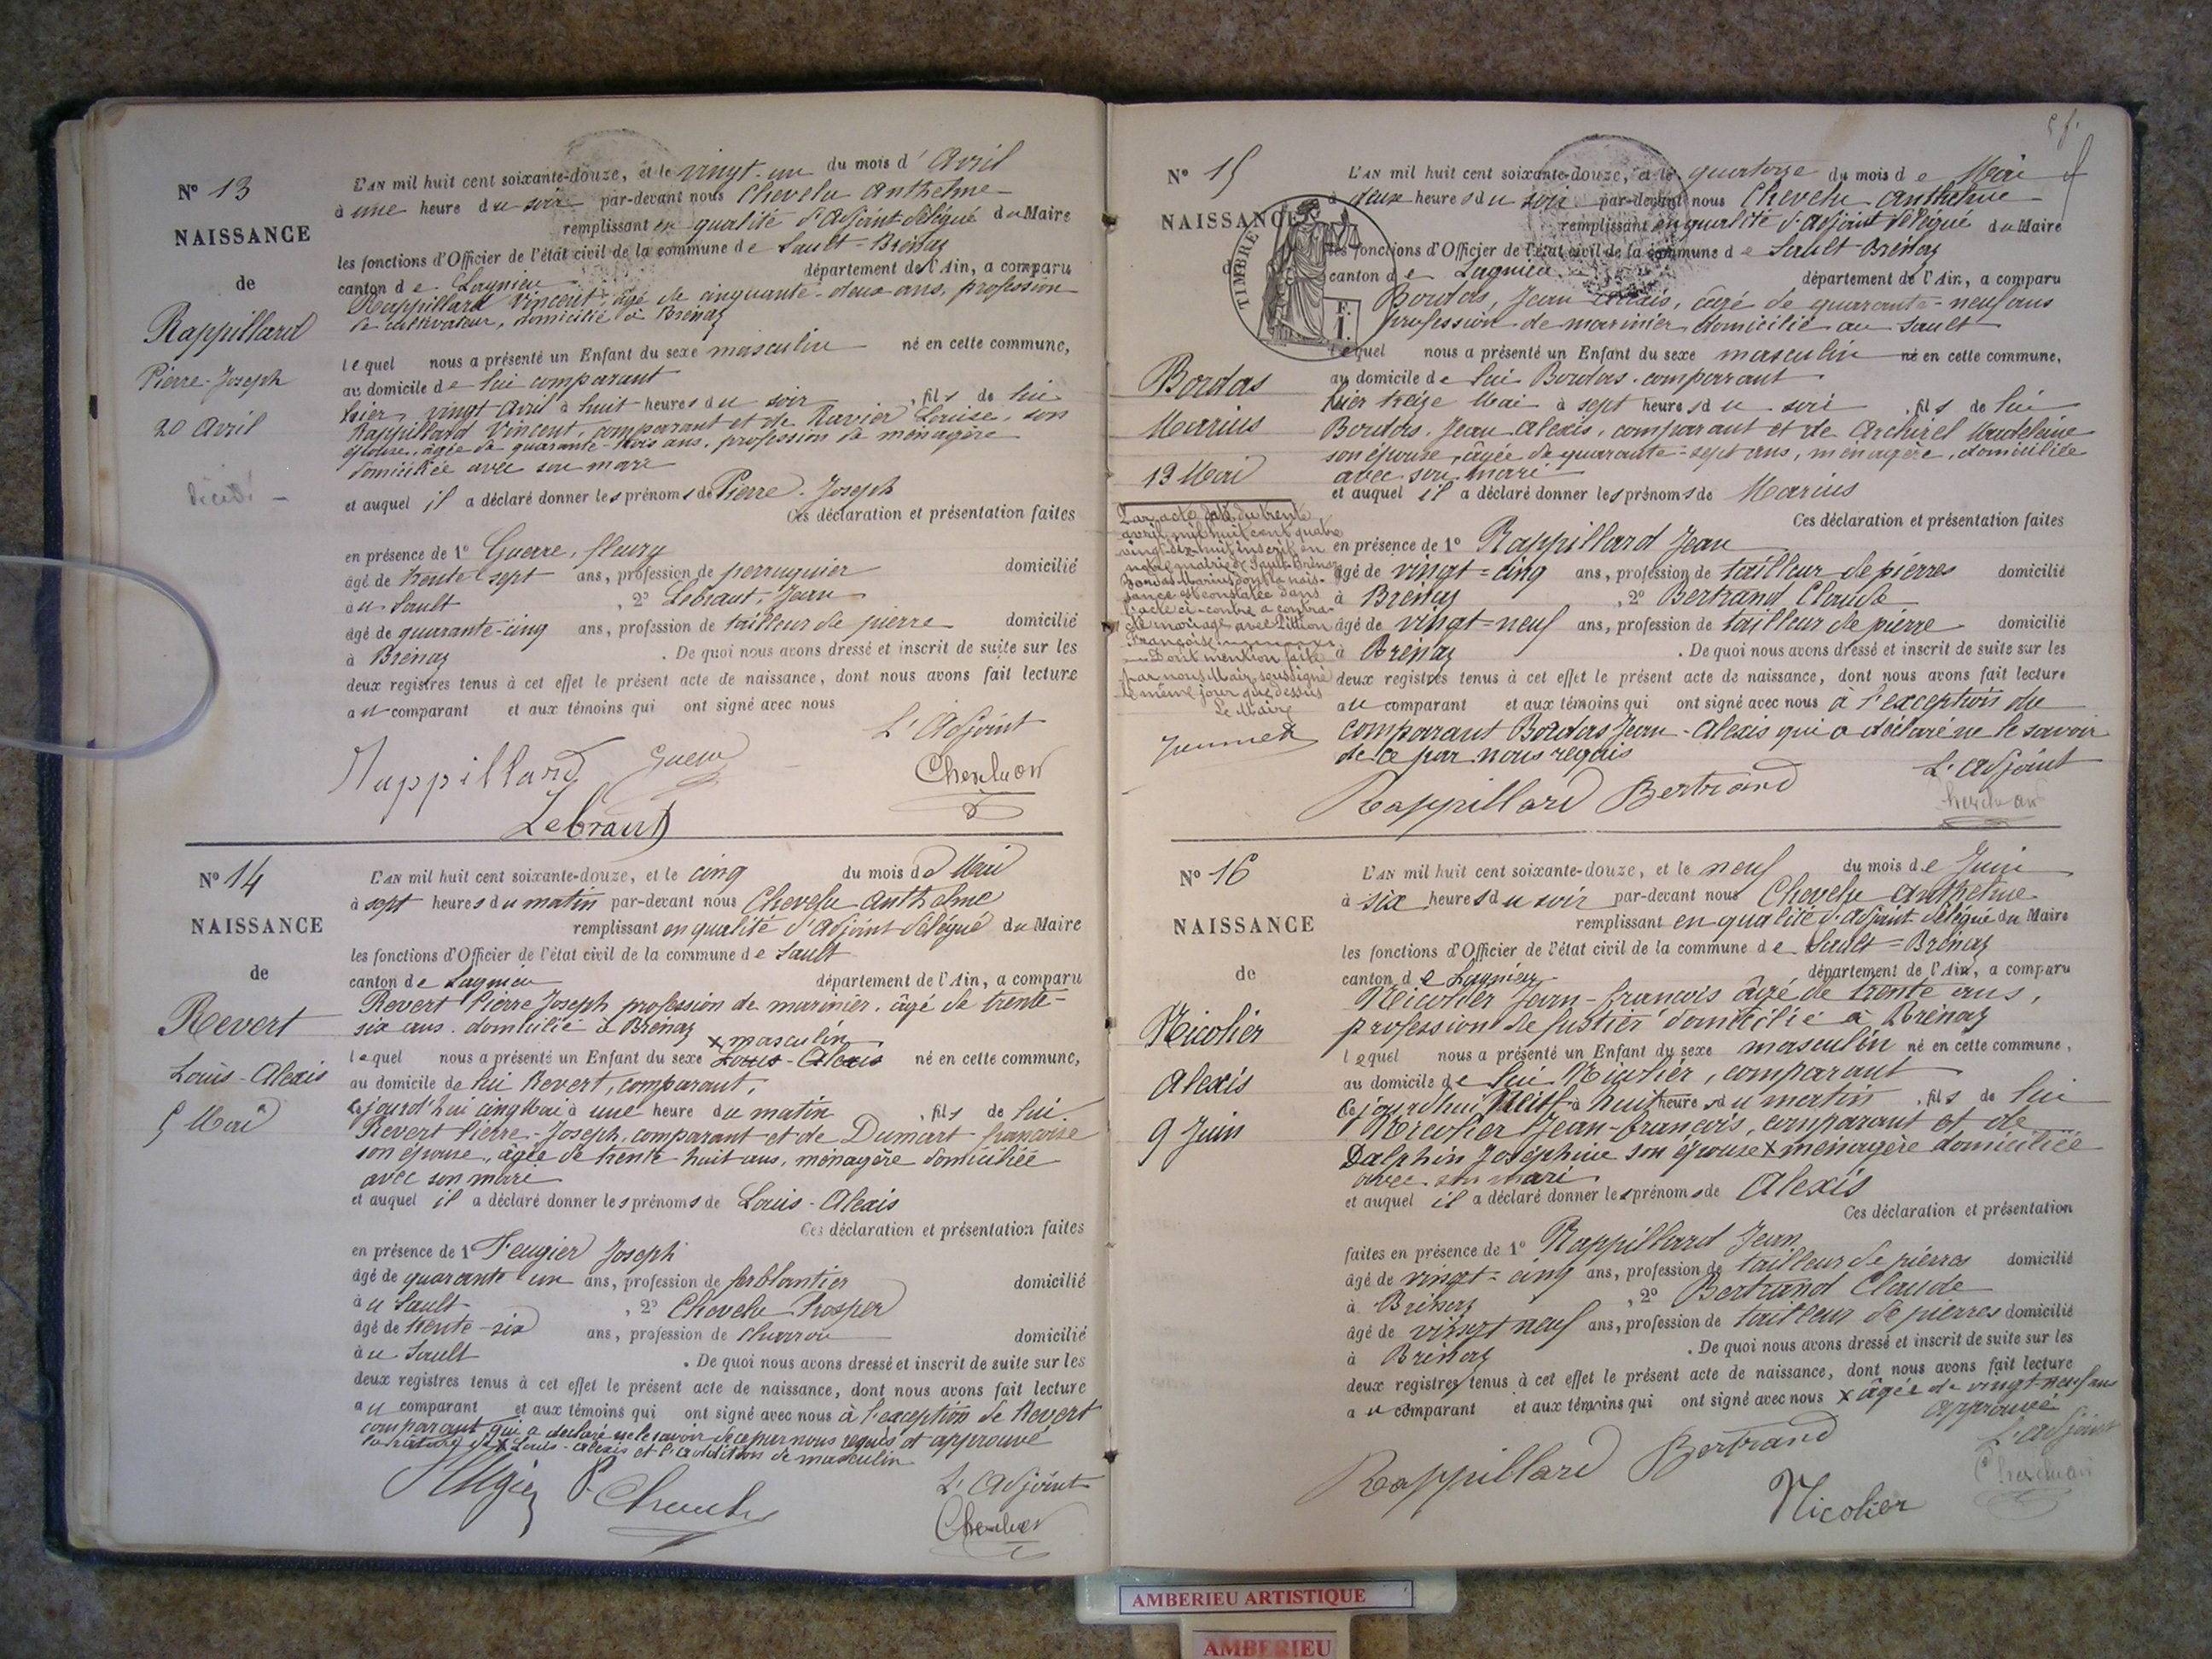 N° 13
NAISSANCE
de
Rappillard
Pierre-Joseph
20 Avril
décédé
L'AN mil huit cent soixante-douze, et le vingt-un du mois d'Avril
à une heure du soir par-devant nous Chevelu Anthelme
remplissant en qualité d'adjoint délégué du Maire
les fonctions d'Officier de l'état civil de la commune de Sault-Brénaz
canton de Lagnieu département de l'Ain, a comparu
Rappillard Vincent âgé de cinquante-deux ans, profession
de cultivateur, domicilié à Brénaz
lequel nous a présenté un Enfant du sexe masculin né en cette commune,
au domicile de lui comparant
hier vingt Avril à huit heures du soir, fils de lui
Rappillard Vincent, comparant et de Ravier Louise, son
épouse, âgée de quarante-trois ans, profession de ménagère
domiciliée avec son mari
et auquel il a déclaré donner les prénoms de Pierre-Joseph
Ces déclaration et présentation faites
en présence de 1° Guerre, fleury
âgé de trente-sept ans, profession de perruquier domicilié
au Sault, 2° Lebraut, Jean
âgé de quarante-cinq ans, profession de tailleur de pierre domicilié
à Brénaz. De quoi nous avons dressé et inscrit de suite sur les
deux registres tenus à cet effet le présent acte de naissance, dont nous avons fait lecture
au comparant et aux témoins qui ont signé avec nous
L'Adjoint
Rappillard Guerre
Lebraut
N° 14
NAISSANCE
de
Revert
Louis-Alexis
5 Mai
L'AN mil huit cent soixante-douze, et le cinq du mois de Mai
à sept heures du matin par-devant nous Chevelu Anthelme
remplissant en qualité d'adjoint délégué du Maire
les fonctions d'Officier de l'état civil de la commune de Sault
canton de Lagnieu département de l'Ain, a comparu
Revert Pierre Joseph profession de marinier, âgé de trente-
six ans domicilié à Brénaz
x masculin
lequel nous a présenté un Enfant du sexe Louis-Alexis né en cette commune,
au domicile de lui Revert, comparant,
cejourd'hui cinq Mai à une heure du matin, fils de lui
Revert Pierre-Joseph, comparant et de Dumart françoise
son épouse, âgée de trente huit ans, ménagère domiciliée
avec son mari
et auquel il a déclaré donner les prénoms de Louis-Alexis
Ces déclaration et présentation faites
en présence de 1° Feugier Joseph
âgé de quarante un ans, profession de ferblantier domicilié
au Sault, 2° Chevelu Prosper
âgé de trente-six ans, profession de charron domicilié
au Sault. De quoi nous avons dressé et inscrit de suite sur les
deux registres tenus à cet effet le présent acte de naissance, dont nous avons fait lecture
au comparant et aux témoins qui ont signé avec nous à l'exception de Revert
comparant qui a déclaré ne le savoir de ce par nous requis et approuvé
la rature de x Louis-Alexis et l'addition de masculin
L'Adjoint
P. Chevelu
N° 15
NAISSANCE
TIMBRE
Bordas
Marius
13 Mai
Par acte daté du trente
avril mil huit cent quatre
vingt-dix-huit inscrit en
notre mairie de Sault-Brénaz
Bordas Marius dont la nais-
sance est constatée dans
l'acte ci-contre a contra-
cté mariage avec
Françoise
Dont mention faite
par nous Maire soussigné
le même jour que dessus
Le Maire
L'AN mil huit cent soixante-douze, et le quatorze du mois de Mai
à deux heures du soir par-devant nous Chevelu Anthelme
remplissant en qualité d'adjoint délégué du Maire
les fonctions d'Officier de l'état civil de la commune de Sault-Brénaz
canton de Lagnieu département de l'Ain, a comparu
Bordas, Jean Alexis, âgé de quarante-neuf ans
profession de marinier domicilié au Sault
lequel nous a présenté un Enfant du sexe masculin né en cette commune,
au domicile de lui Bordas, comparant
hier treize Mai à sept heures du soir, fils de lui
Bordas, Jean Alexis, comparant et de Archirel Madeleine
son épouse, âgée de quarante-sept ans, ménagère, domiciliée
avec son mari
et auquel il a déclaré donner les prénoms de Marius
Ces déclaration et présentation faites
en présence de 1° Rappillard Jean
âgé de vingt-cinq ans, profession de tailleur de pierres domicilié
à Brénaz, 2° Bertrand Claude
âgé de vingt-neuf ans, profession de tailleur de pierre domicilié
à Brénaz. De quoi nous avons dressé et inscrit de suite sur les
deux registres tenus à cet effet le présent acte de naissance, dont nous avons fait lecture
au comparant et aux témoins qui ont signé avec nous à l'exception du
comparant Bordas Jean-Alexis qui a déclaré ne le savoir
de ce par nous requis
L'Adjoint
Rappillard Bertrand
N° 16
NAISSANCE
de
Nicolier
Alexis
9 Juin
L'AN mil huit cent soixante-douze, et le neuf du mois de Juin
à six heures du soir par-devant nous Chevelu Anthelme
remplissant en qualité d'adjoint délégué du Maire
les fonctions d'Officier de l'état civil de la commune de Sault-Brénaz
canton de Lagnieu département de l'Ain, a comparu
Nicolier Jean-françois âgé de trente ans,
profession de fustier domicilié à Brénaz
lequel nous a présenté un Enfant du sexe masculin né en cette commune,
au domicile de lui Nicolier, comparant
cejourdhui Neuf à huit heures du matin, fils de lui
Nicolier Jean-françois, comparant et de
Dalphin Joséphine son épouse x ménagère domiciliée
avec son mari
et auquel il a déclaré donner les prénoms de Alexis
Ces déclaration et présentation
faites en présence de 1° Rappillard Jean
âgé de vingt-cinq ans, profession de tailleur de pierres domicilié
à Brénaz, 2° Bertrand Claude
âgé de vingt neuf ans, profession de tailleur de pierres domicilié
à Brénaz. De quoi nous avons dressé et inscrit de suite sur les
deux registres tenus à cet effet le présent acte de naissance, dont nous avons fait lecture
au comparant et aux témoins qui ont signé avec nous x âgée de vingt-neuf ans
approuvé
L'Adjoint
Rappillard Bertrand
Nicolier
AMBERIEU ARTISTIQUE
AMBERIEU